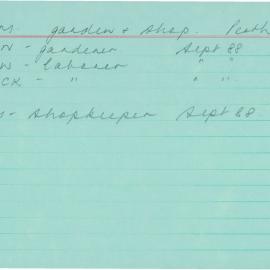 garden & shop. Perth
- gardener Sept 88
- labourer " "
CK - " " "
- shopkeeper Sept 88